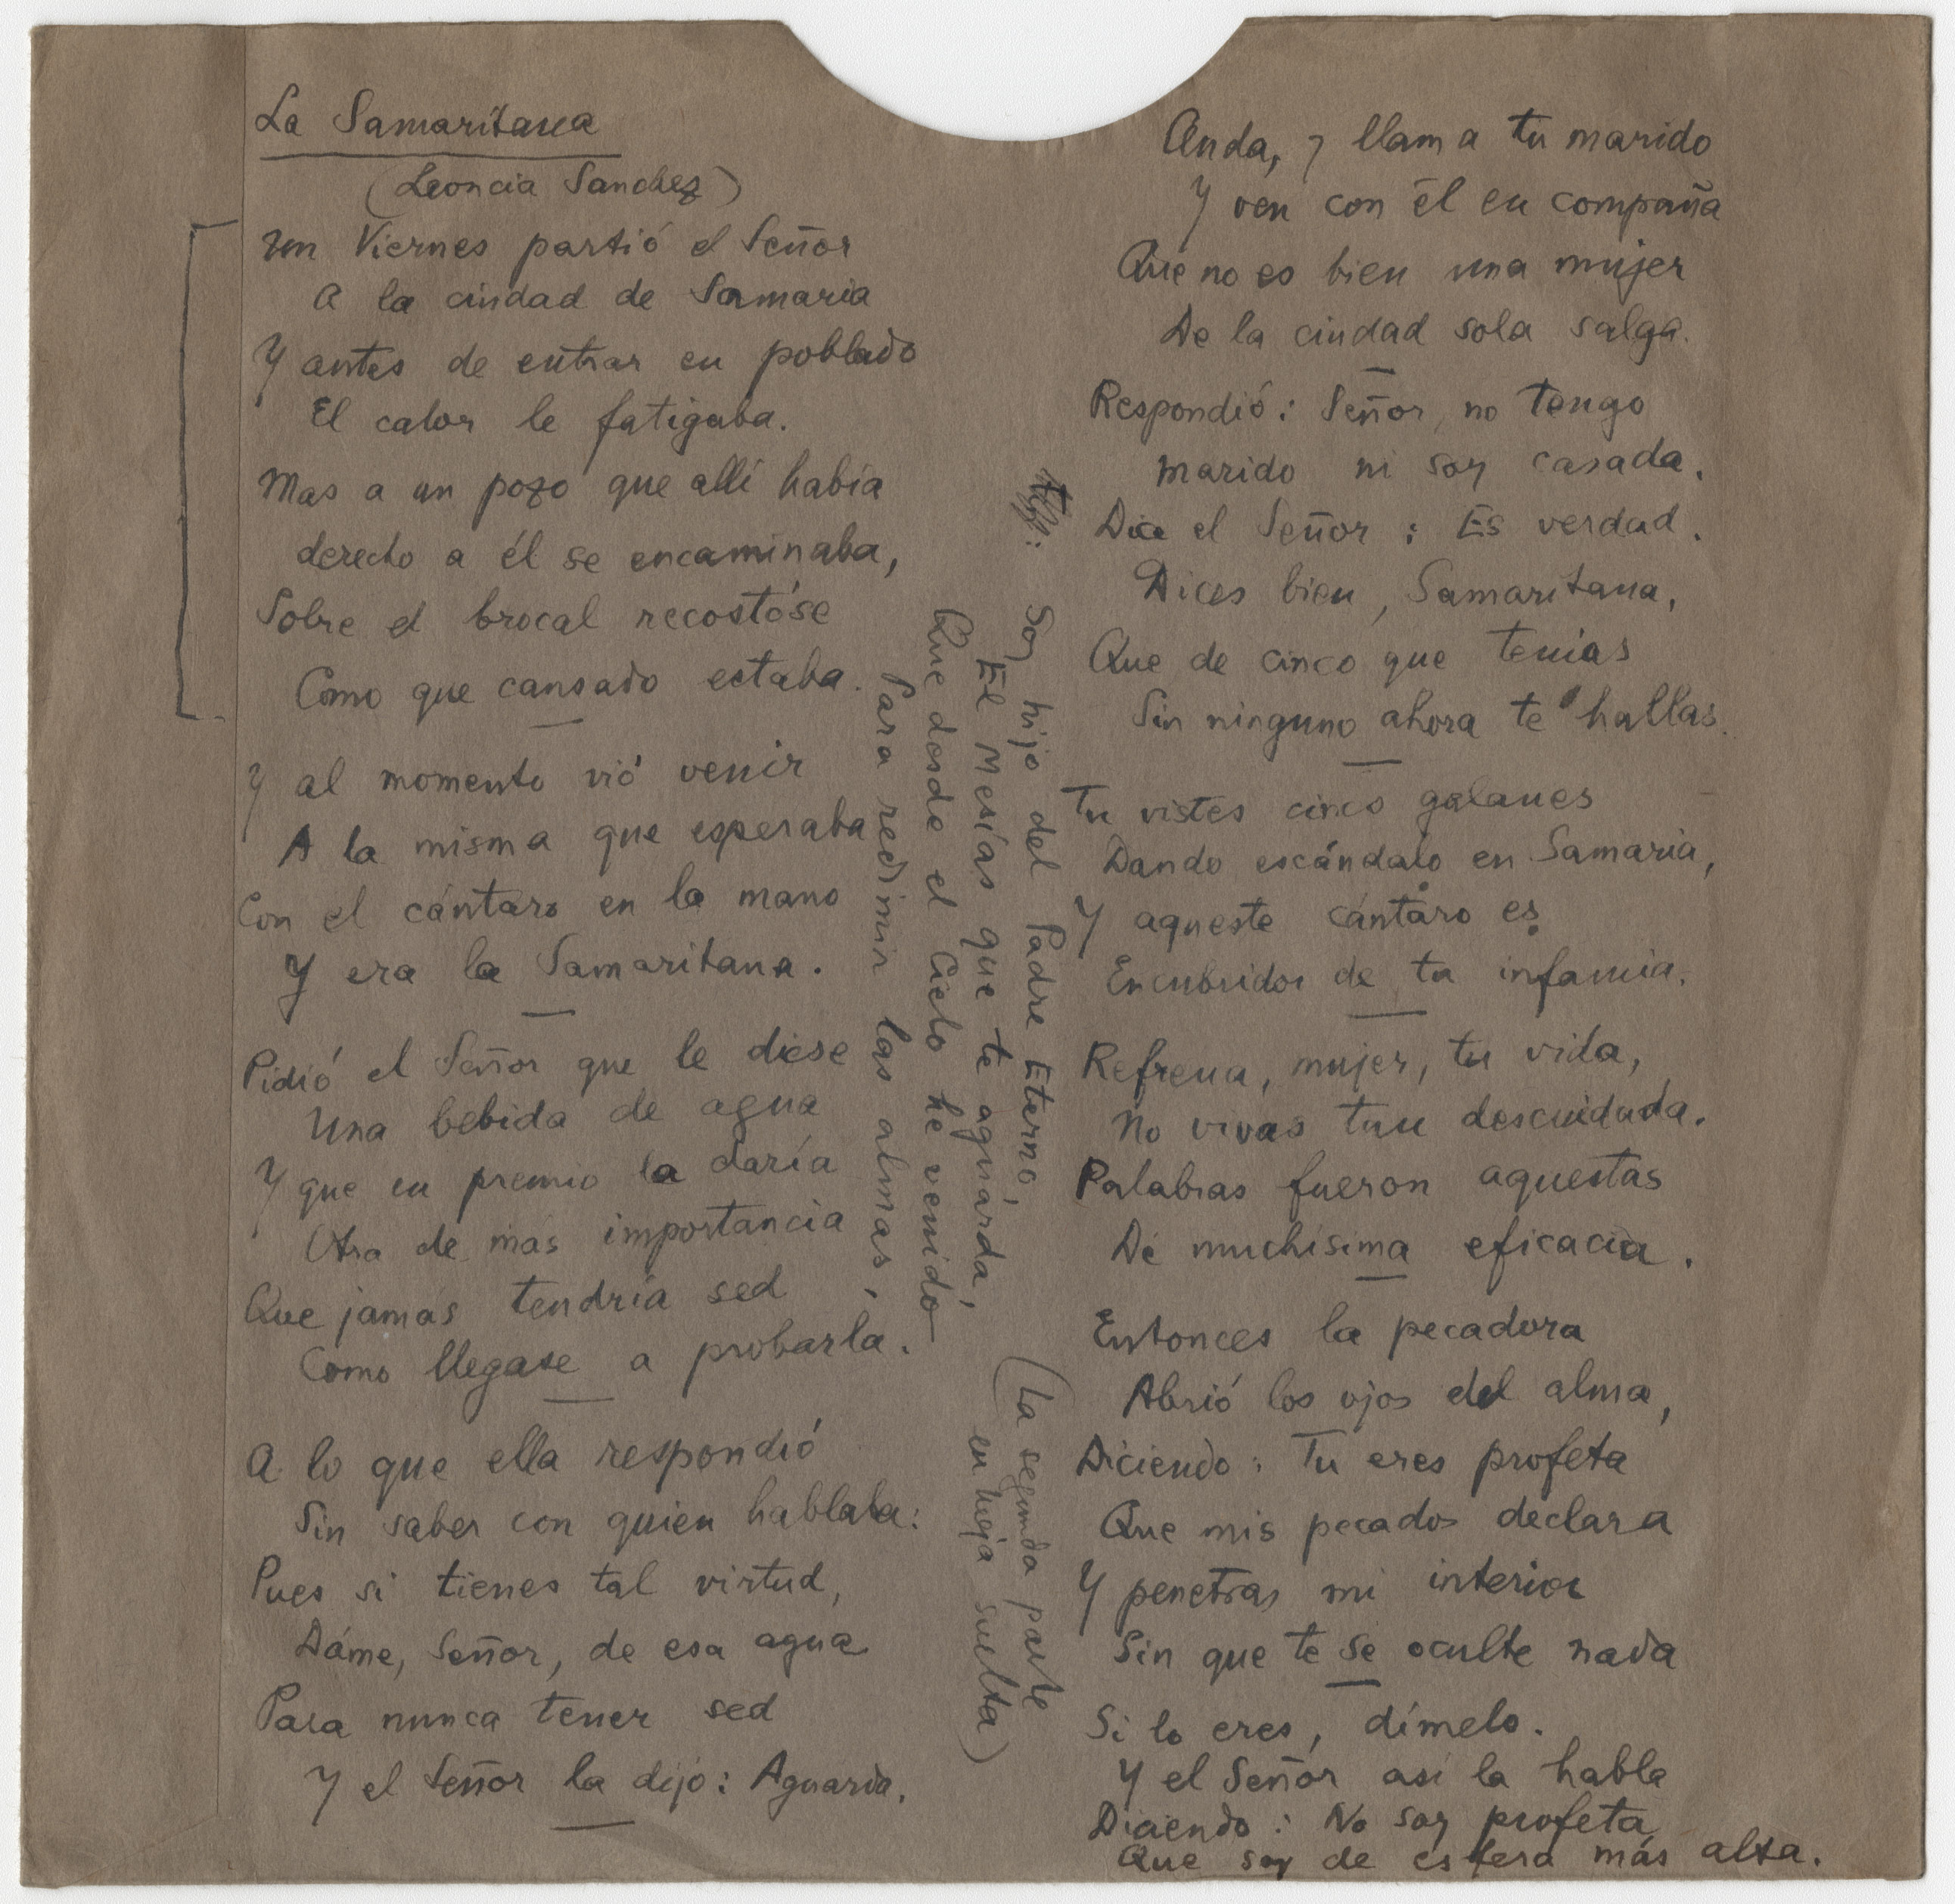 La Samaritana
(Leoncia Sanchez)
Un Viernes partió el Señor
A la ciudad de Samaria
Y antes de entrar en poblado
El calor le fatigaba.
Mas a un pozo que allí había
derecho a él se encaminaba,
Sobre el brocal recostóse
Como que cansado estaba.
Y al momento vió venir
A la misma que esperaba
Con el cántaro en la mano
Y era la Samaritana.
Pidió el Señor que le diese
Una bebida de agua
Y que en premio la daría
Otra de más importancia
Que jamás tendría sed
Como llegase a probarla.
A lo que ella respondió
Sin saber con quien hablaba:
Pues si tienes tal virtud,
Dáme, Señor, de esa agua
Para nunca tener sed
Y el Señor la dijo: Aguarda.
Anda, y llama tu marido
Y ven con él en compaña
Que no es bien una mujer
De la ciudad sola salga.
Respondió: Señor, no tengo
marido ni soy casada.
Dice el Señor: Es verdad.
Dices bien, Samaritana,
Que de cinco que tenias
Sin ninguno ahora te hallas.
Tu vistes cinco galanes
Dando escándalo en Samaria,
Y aqueste cántaro es
Encubridor de tu infamia.
Refrena, mujer, tu vida,
No vivas tan descuidada.
Palabras fueron aquestas
De muchísima eficacia.
Entonces la pecadora
Abrió los ojos del alma,
Diciendo: Tu eres profeta
Que mis pecados declara
Y penetras mi interior
Sin que te se oculte nada
Si lo eres, dímelo.
Y el Señor así la habla
Diciendo: No soy profeta
Que soy de esfera más alta.
Soy hijo del Padre Eterno,
El Mesías que te aguarda,
Que desde el Cielo he venido
Para redimir las almas,
(La segunda parte
en hoja suelta)